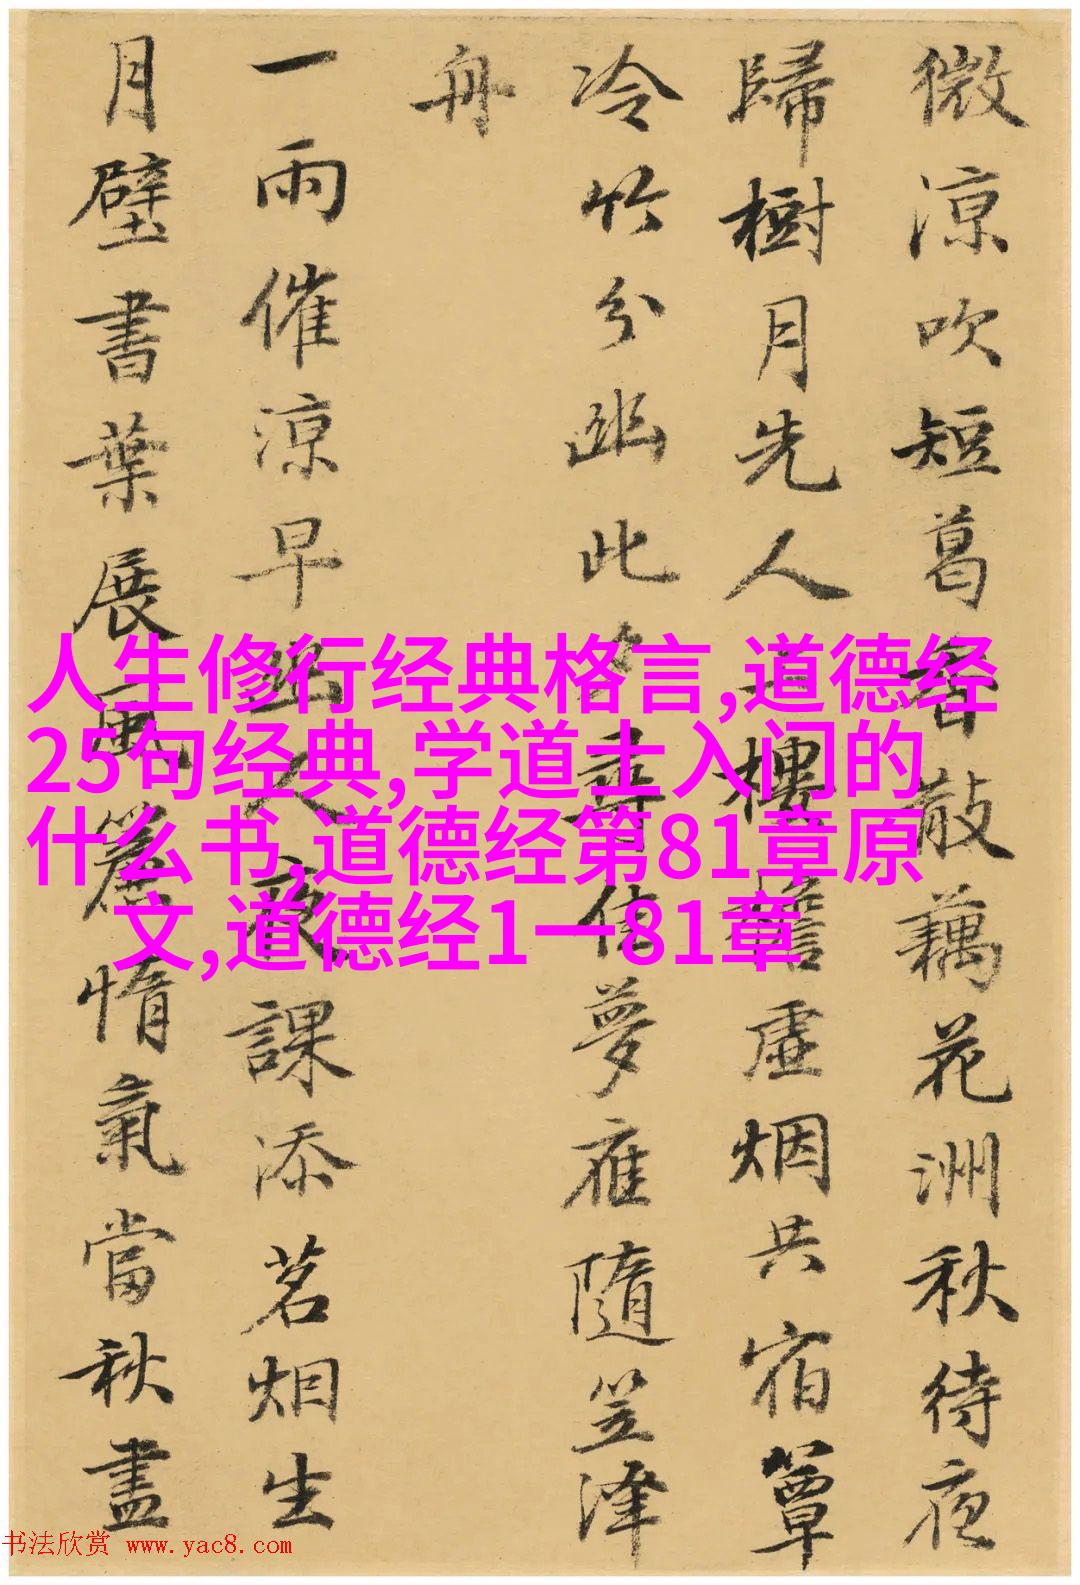 微涼吹短葛客散藕花洲秋待夜
歸樹月先人樓檐虛烟共宿簟
冷竹分幽此夕尋信夢雁隨笠澤
舟
一雨催涼早幽人夜課添茗烟生
月壁書葉展風簾惰氣當秋盡
人生修行经典格言,道德经
25句经典,学道士入门的
什么书,道德经第81章原
文,道德经1一81章
书法欣赏 www.yac8.com